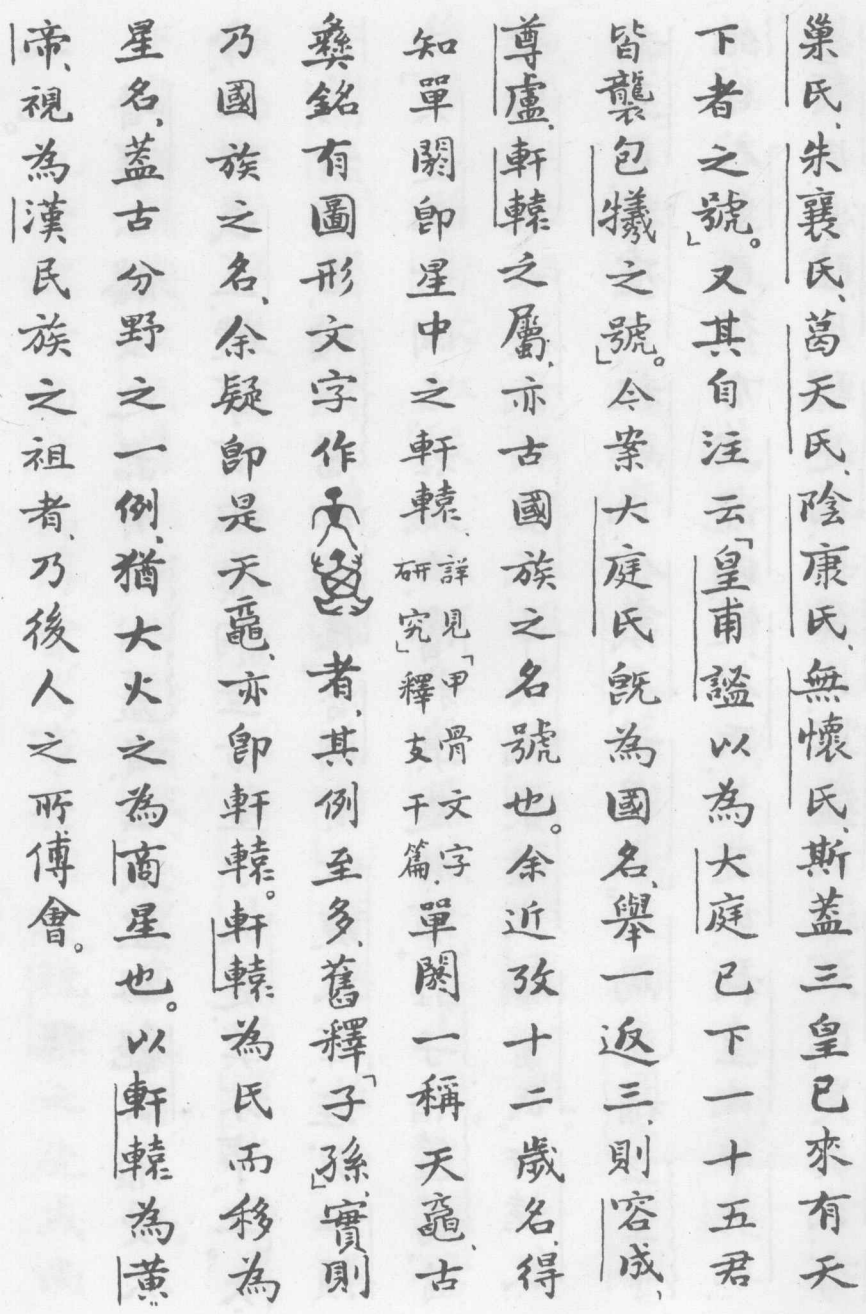 巢氏、朱襄氏、葛天氏、陰康氏、無懷氏、斯蓋三皇已來有天
下者之號。」又其自注云「皇甫謐以為大庭已下一十五君
皆襲包犧之號。」今案大庭氏既為國名、舉一返三、則容成、
尊盧、軒轅之屬、亦古國族之名號也。余近攷十二歲名、得
知單閼即星中之軒轅、詳見「甲骨文字研究」釋支干篇、單閼一稱天黿、古
彝銘有圖形文字作者、其例至多、舊釋「子孫」、實則
乃國族之名、余疑即是天黽、亦即軒轅。軒轅為氏而移為
星名、蓋古分野之一例、猶大火之為商星也。以軒轅為黃
帝、視為漢民族之祖者、乃後人之所傅會。